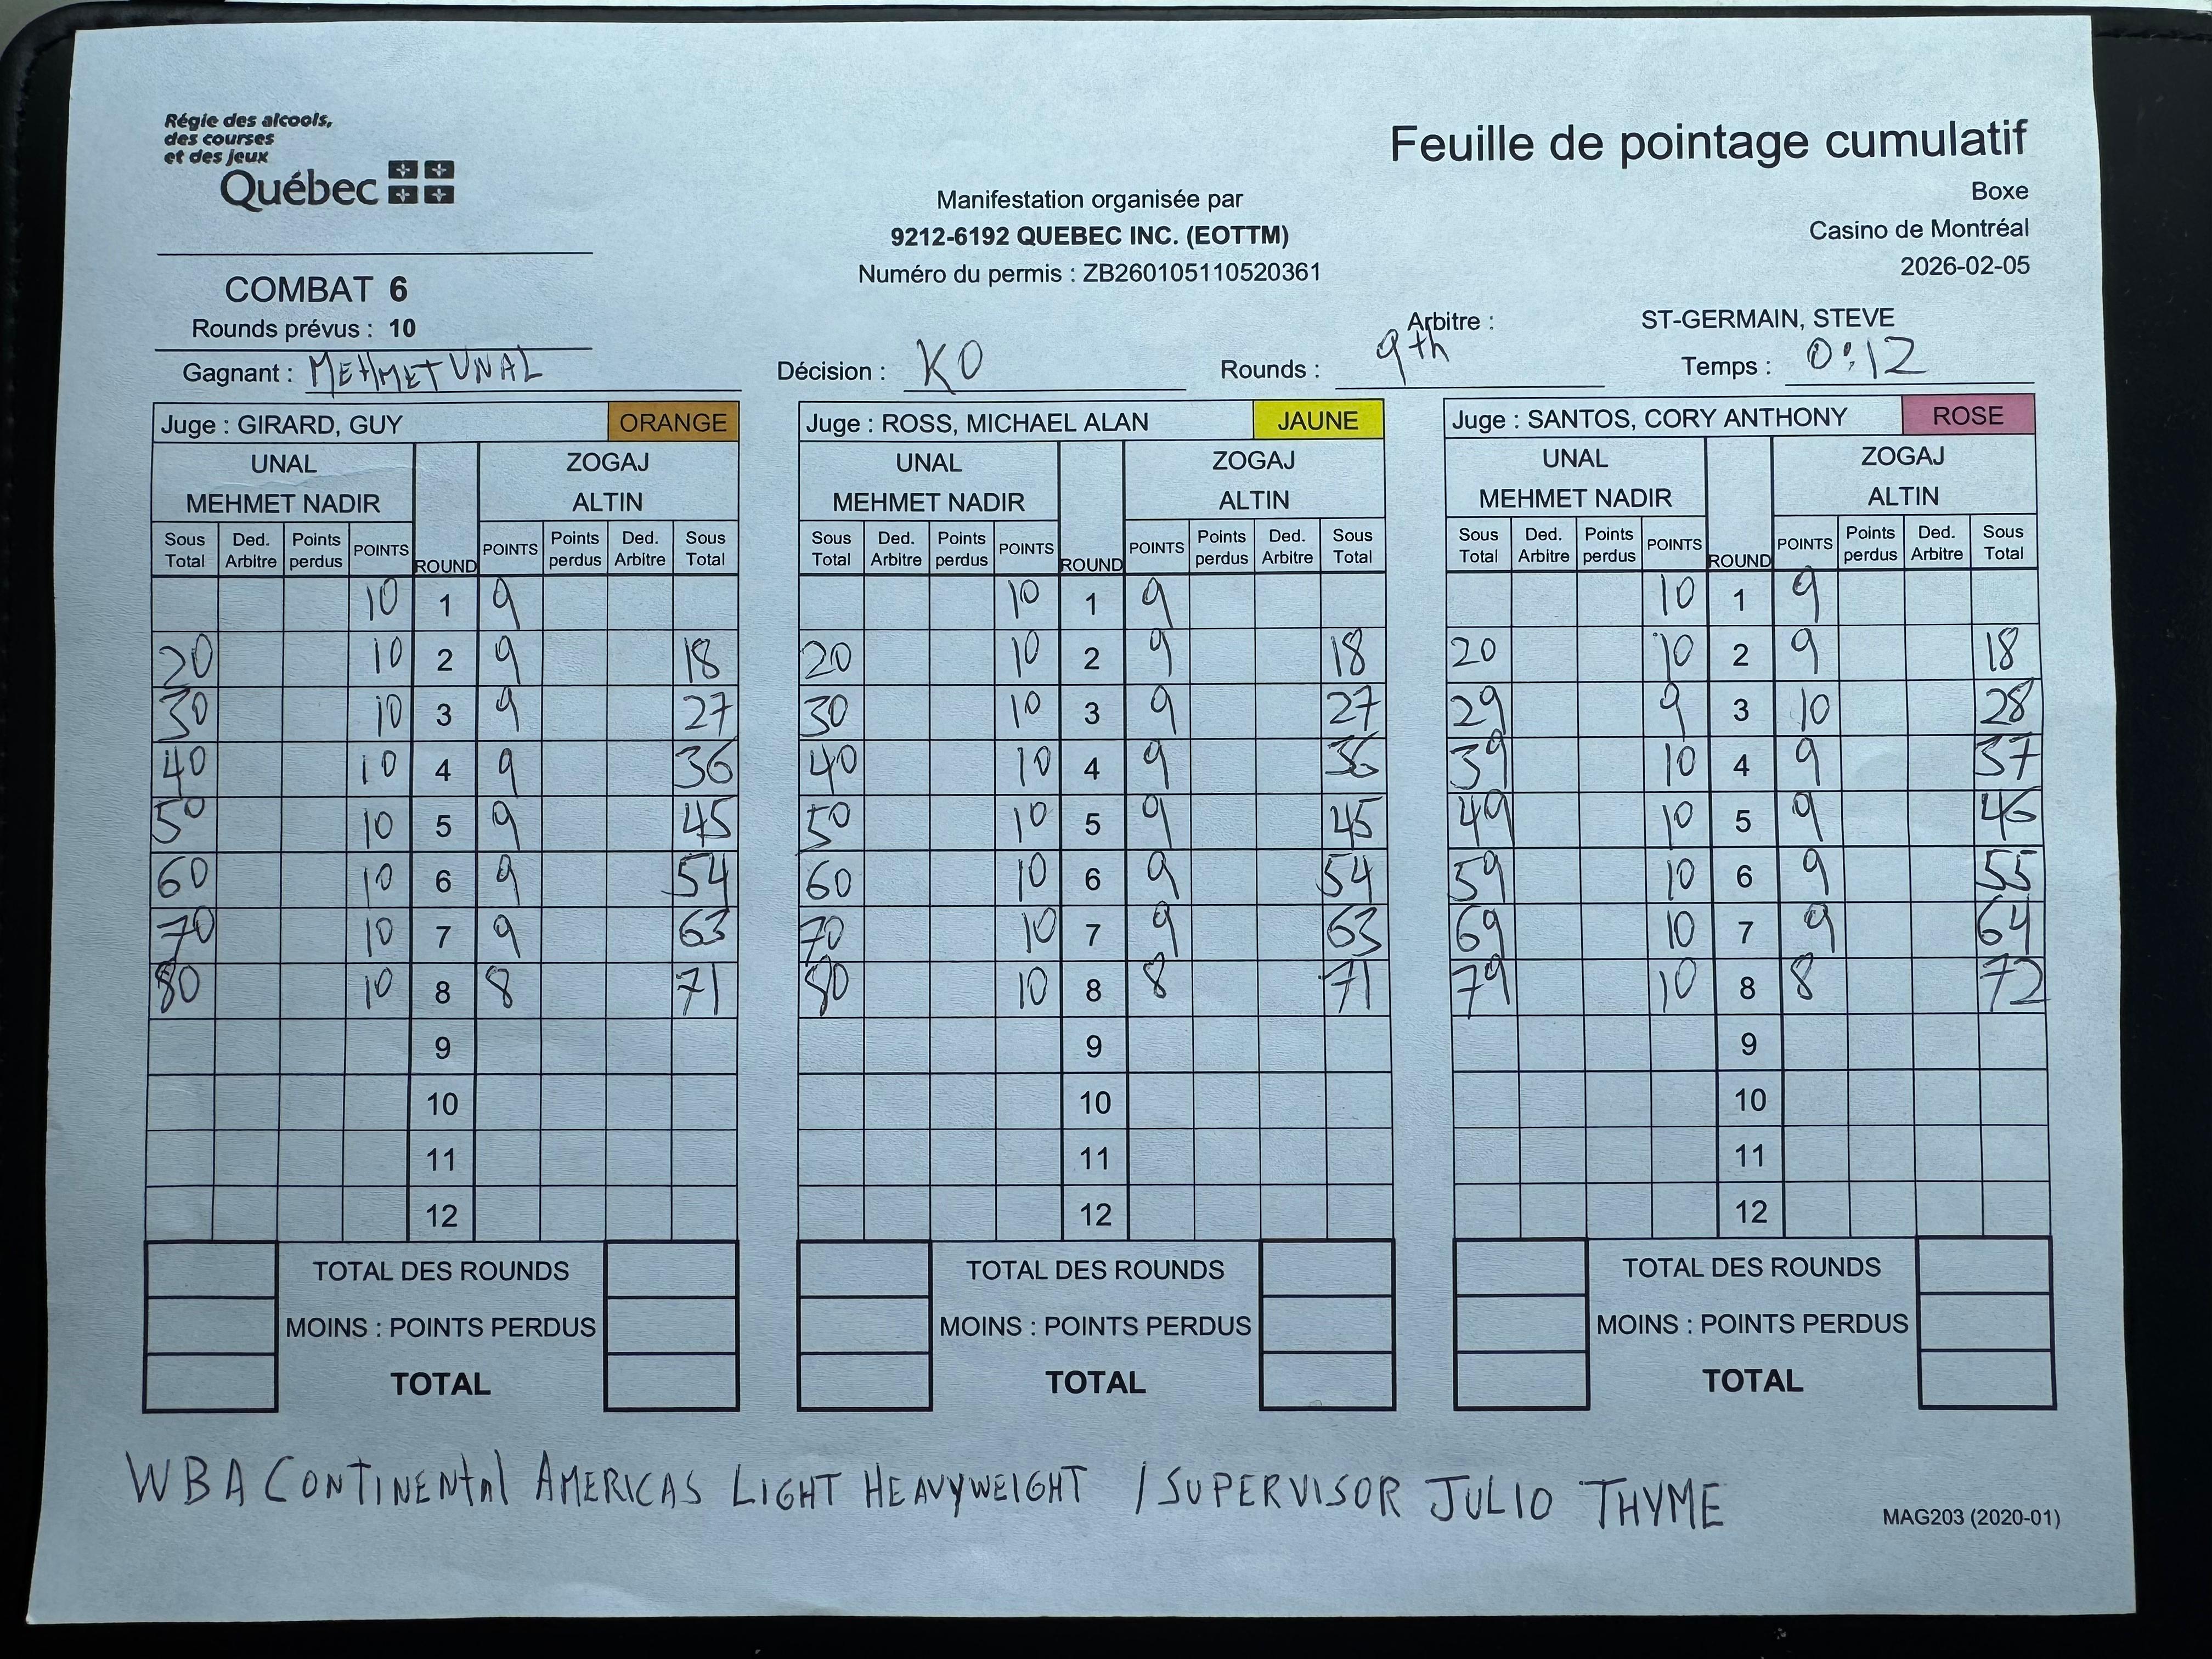 Régie des alcools,
des courses
et des jeux
Québec
Feuille de pointage cumulatif
Boxe
Casino de Montréal
2026-02-05
Manifestation organisée par
9212-6192 QUEBEC INC. (EOTTM)
Numéro du permis : ZB260105110520361
COMBAT 6
Rounds prévus : 10
Arbitre : ST-GERMAIN, STEVE
Gagnant : MEHMET UNAL Décision : KO Rounds : 9th Temps : 0:12
Juge : GIRARD, GUY ORANGE
UNAL ZOGAJ
MEHMET NADIR ALTIN
Sous Total Ded. Arbitre Points perdus POINTS ROUND POINTS Points perdus Ded. Arbitre Sous Total
10 1 9
20 10 2 9 18
30 10 3 9 27
40 10 4 9 36
50 10 5 9 45
60 10 6 9 54
70 10 7 9 63
80 10 8 8 71
9
10
11
12
TOTAL DES ROUNDS
MOINS : POINTS PERDUS
TOTAL
Juge : ROSS, MICHAEL ALAN JAUNE
UNAL ZOGAJ
MEHMET NADIR ALTIN
Sous Total Ded. Arbitre Points perdus POINTS ROUND POINTS Points perdus Ded. Arbitre Sous Total
10 1 9
20 10 2 9 18
30 10 3 9 27
40 10 4 9 36
50 10 5 9 45
60 10 6 9 54
70 10 7 9 63
80 10 8 8 71
9
10
11
12
TOTAL DES ROUNDS
MOINS : POINTS PERDUS
TOTAL
Juge : SANTOS, CORY ANTHONY ROSE
UNAL ZOGAJ
MEHMET NADIR ALTIN
Sous Total Ded. Arbitre Points perdus POINTS ROUND POINTS Points perdus Ded. Arbitre Sous Total
10 1 9
20 10 2 9 18
29 9 3 10 28
39 10 4 9 37
49 10 5 9 46
59 10 6 9 55
69 10 7 9 64
79 10 8 8 72
9
10
11
12
TOTAL DES ROUNDS
MOINS : POINTS PERDUS
TOTAL
WBA CONTINENTAL AMERICAS LIGHT HEAVYWEIGHT / SUPERVISOR JULIO THYME
MAG203 (2020-01)